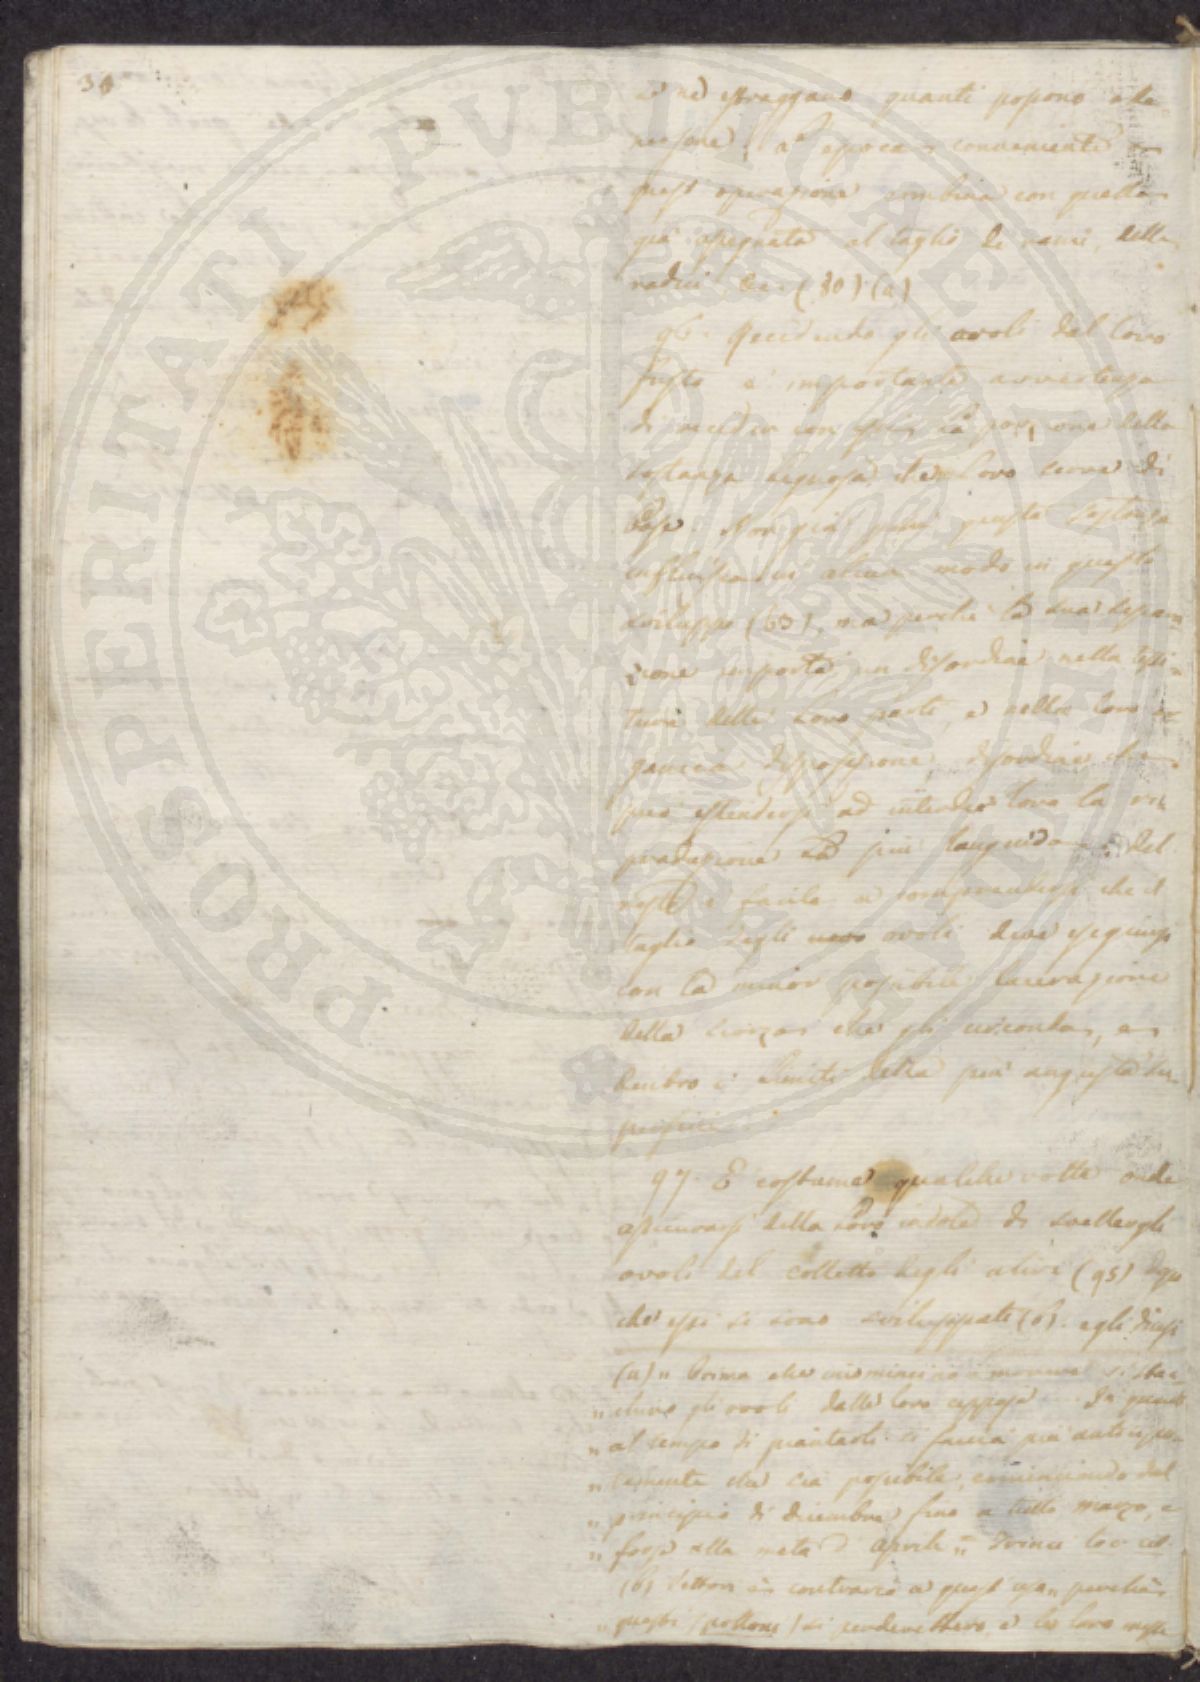 34
se ne estraggano quanti possono abb
necessne; l'epoca conveniente a
quest' operazione combina con quella
già assegnata al taglio de' rami, delle
radici &c. (80) (a)
96. Recidendo gli ovoli dal loro
fusto è importante avvertenza
di recider con essi la porzione della
sostanza legnosa che loro serve di
base. Non già perchè questa sostanza
influisca in alcun modo in questo
sviluppo (63), ma perchè la sua separa=
zione importa un disordine nella tessi=
tura delle loro parti, e nella loro or
ganica disposizione, disordine che
può estendersi ad interdire loro la ri
produzione od più languida. Del
resto è facile a comprendersi che il
taglio degli ovoli deve eseguirsi
con la minor possibile lacerazione
della scorza che gli circonda, e
dentro i limiti della più angusta su=
perficie.
97. È costume qualche volta onde
assicurarsi della loro indole di svellergli
ovoli dal colletto degli olivi (95) dopo
che essi si sono sviluppati (b). egli dicesi
(a) " Prima che incominciino a muovere si stac=
" chino gli ovoli dalle loro ceppaje .... In quanto
" al tempo di piantarli si faccia più anticipa=
" tamente che sia possibile, cominciando dal
" principio di dicembre fino a tutto marzo, e
" forse alla metà d'aprile " Trinci loc cit.
(b) Vettori è contrario a quest' uso " perchè
" questi (polloni) si penderebbero, e le loro messe